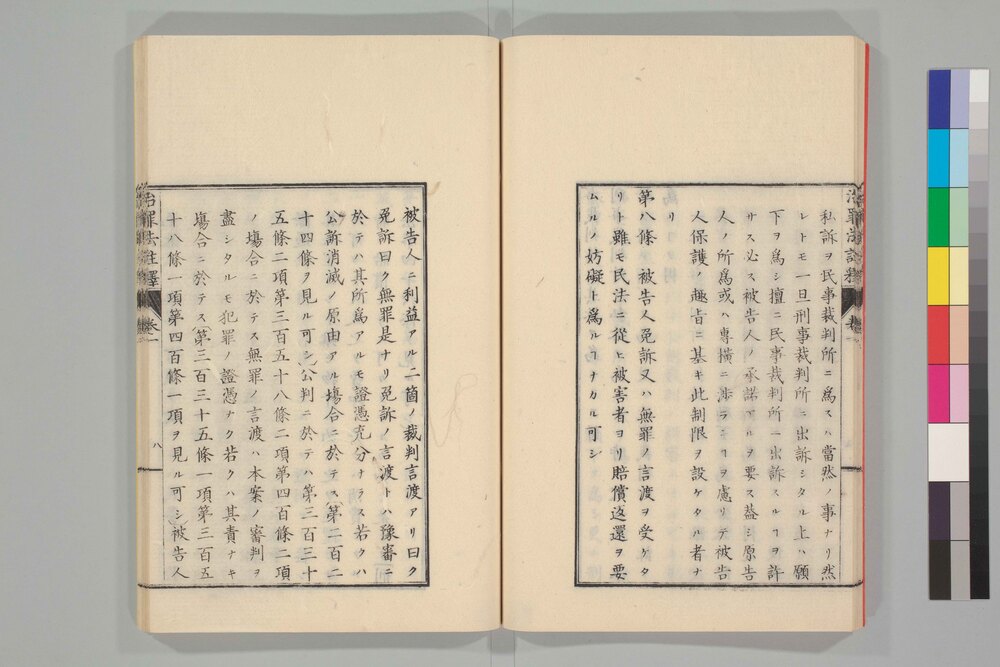 治罪法註釋 卷一
私訴ヲ民事裁判所ニ爲スハ當然ノ事ナリ然
レトモ一旦刑事裁判所ニ出訴シタル上ハ願
下ヲ爲シ擅ニ民事裁判所ニ出訴スルヿヲ許
サス必ス被告人ノ承諾アルヲ要ス蓋シ原告
人ノ所爲或ハ專横ニ渉ランヿヲ慮リテ被告
人保護ノ趣旨ニ基キ此制限ヲ設ケタル者ナ
リ
第八條 被告人免訴又ハ無罪ノ言渡ヲ受ケタ
リト雖モ民法ニ從ヒ被害者ヨリ賠償返還ヲ要
ムルノ妨礙ト爲ルヿナカル可シ
被告人ニ利益アル二箇ノ裁判言渡アリ曰ク
免訴曰ク無罪是ナリ免訴ノ言渡トハ豫審ニ
於テハ其所爲アルモ證憑充分ナラス若クハ
公訴消滅ノ原由アル塲合ニ於テス(第二百二
十四條ヲ見ル可シ)公判ニ於テハ第三百三十
五條二項第三百五十八條二項第四百條二項
ノ塲合ニ於テス無罪ノ言渡ハ本案ノ審判ヲ
盡シタルモ犯罪ノ證憑ナク若クハ其責ナキ
塲合ニ於テス(第三百三十五條一項第三百五
十八條一項第四百條一項ヲ見ル可シ)被告人
治罪法註釋 卷一 八